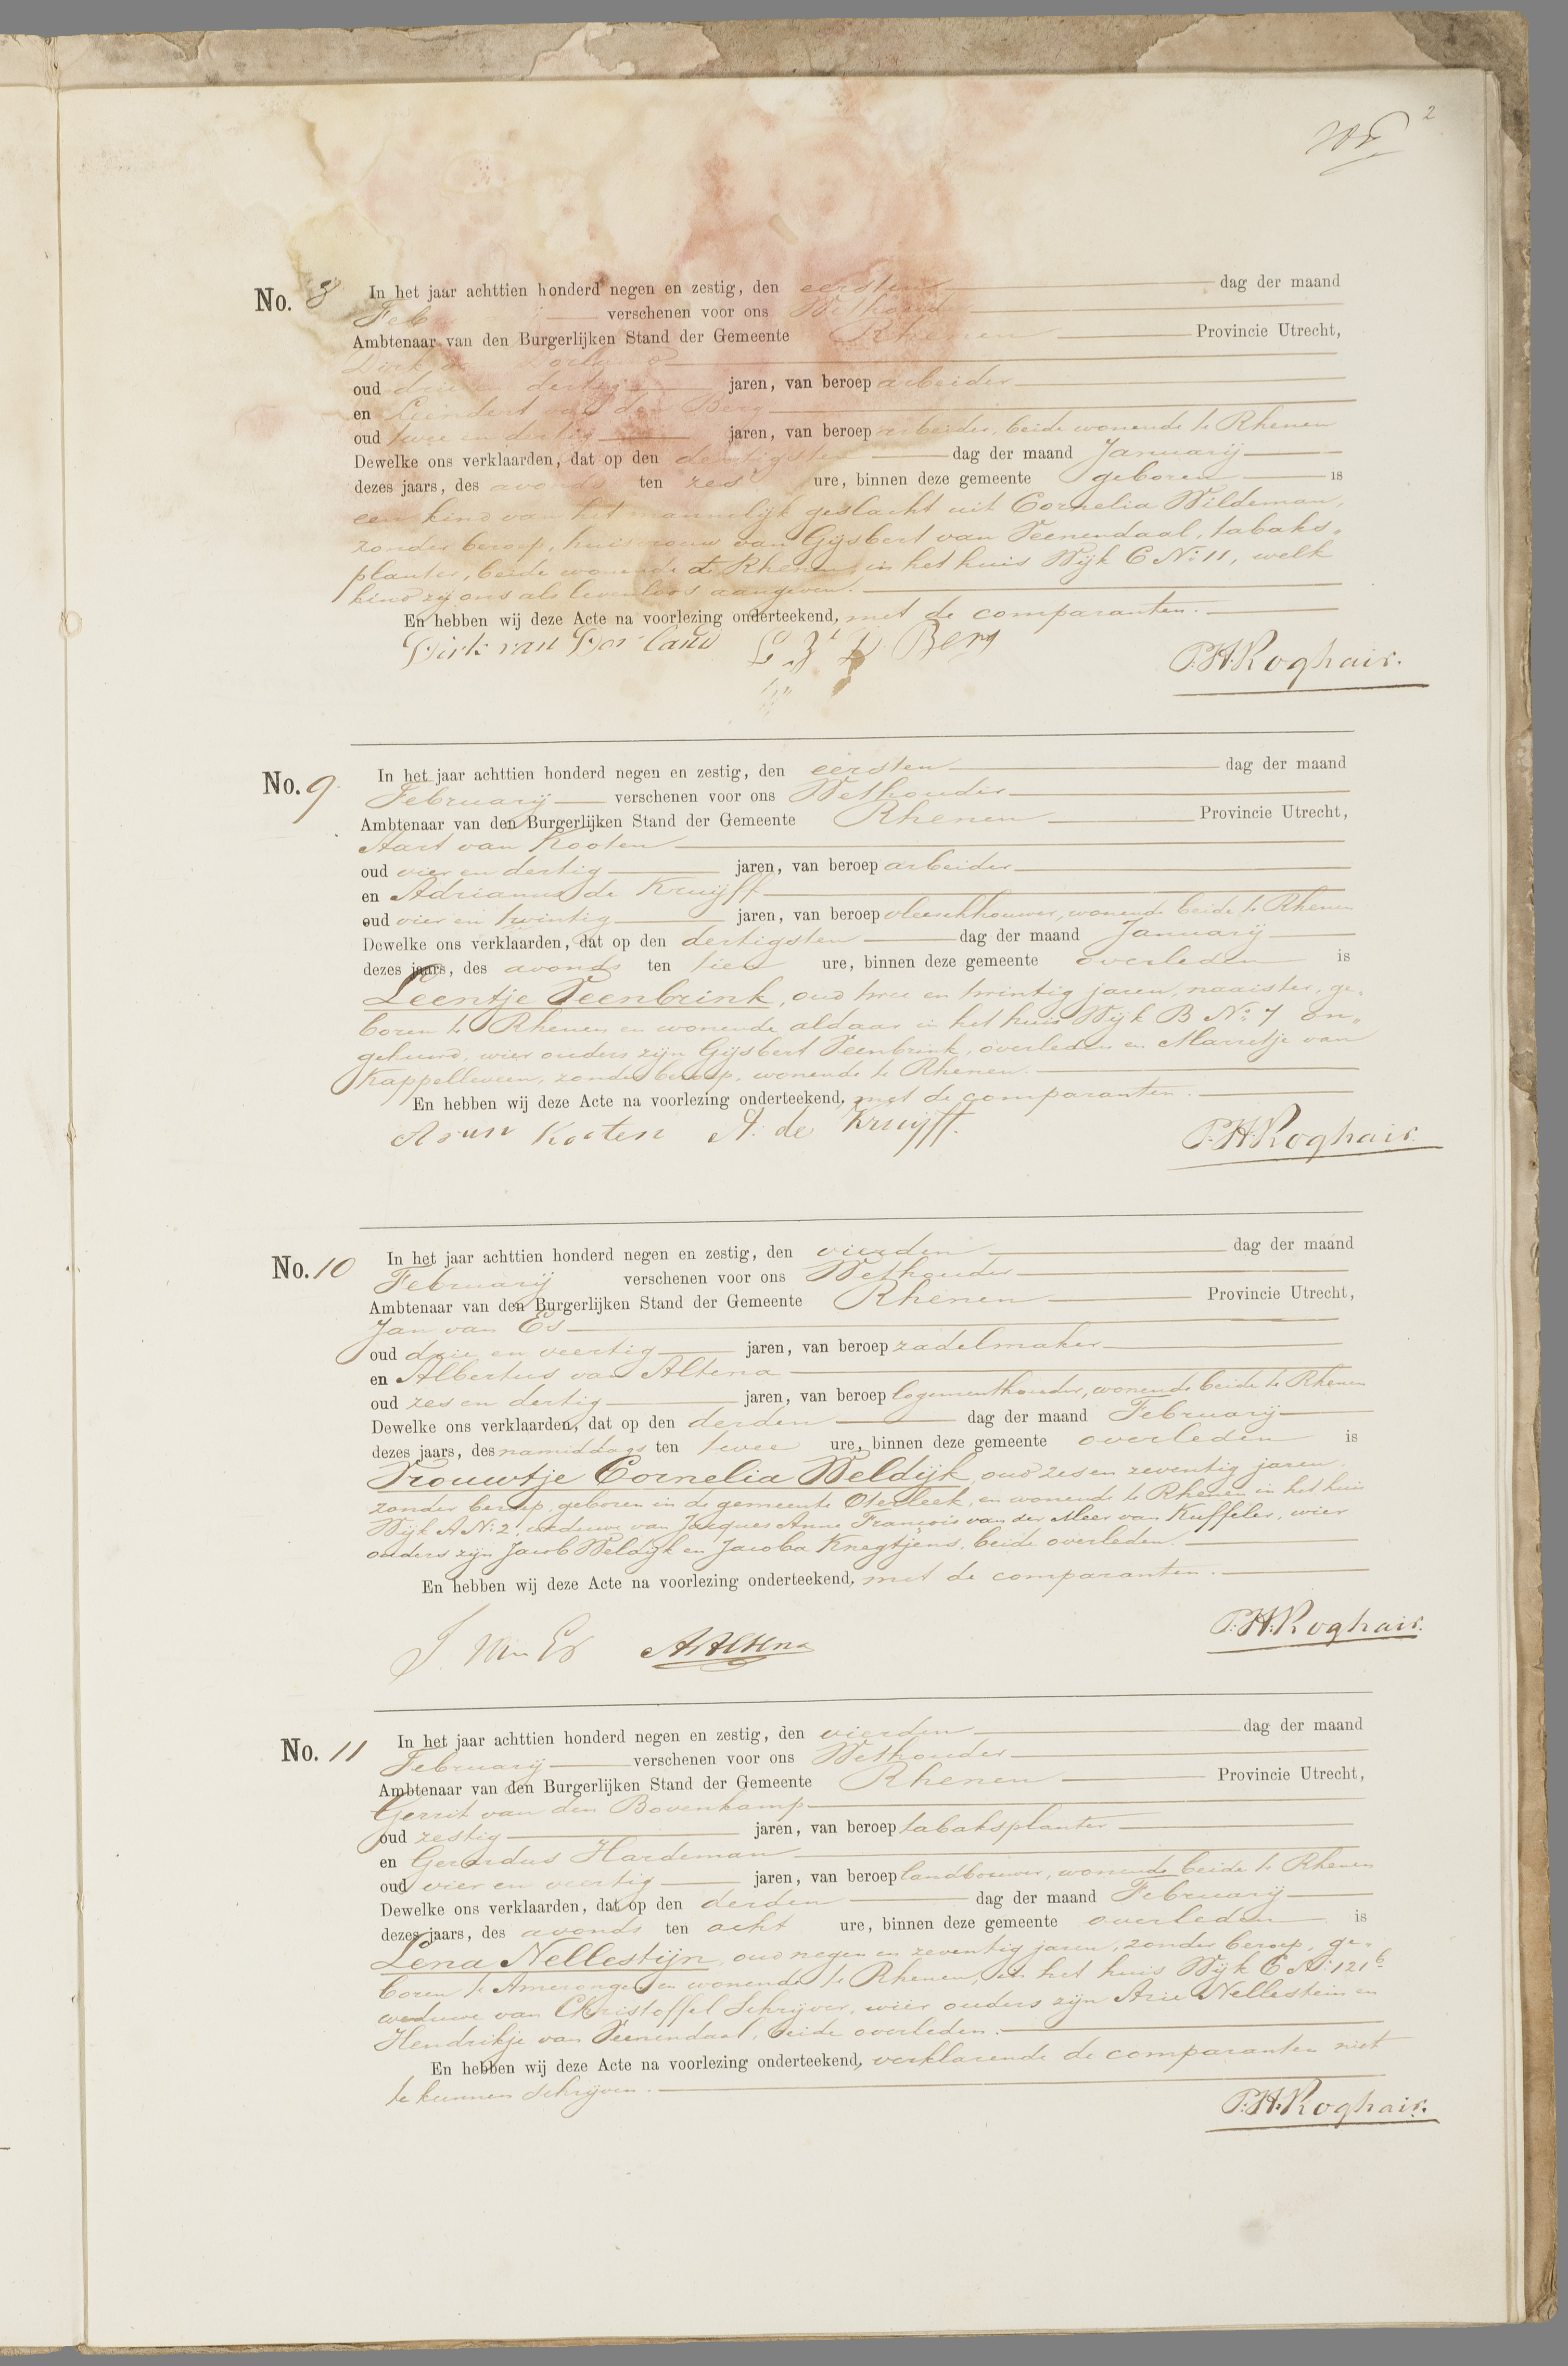 2
No. 8 In het jaar achttien honderd negen en zestig, den eersten dag der maand
Feb verschenen voor ons Wethouder
Ambtenaar van den Burgerlijken Stand der Gemeente Rhenen Provincie Utrecht,
Dirk
oud drie en dertig jaren, van beroep arbeider
en Leendert van den Berg
oud twee en dertig jaren, van beroep arbeider, beide wonende te Rhenen
Dewelke ons verklaarden, dat op den dertigsten dag der maand Januarij
dezes jaars, des avonds ten zes ure, binnen deze gemeente geboren is
een kind van het mannelijk geslacht uit Cornelia Wildeman,
zonder beroep, huisvrouw van Gijsbert van Veenendaal, tabaks„
planter, beide wonende te Rhenen, in het huis Wijk C No 11, welk
kind zij ons als levenloos aangeven.
En hebben wij deze Acte na voorlezing onderteekend, met de comparanten.
Dirk van Dorland L v d Berg P.H.Roghair.
No. 9. In het jaar achttien honderd negen en zestig, den eersten dag der maand
Februarij verschenen voor ons Wethouder
Ambtenaar van den Burgerlijken Stand der Gemeente Rhenen Provincie Utrecht,
Aart van Kooten
oud vier en dertig jaren, van beroep arbeider
en Adrianus de Kruijff
oud vier en twintig jaren, van beroep vleeschhouwer, wonende beide te Rhenen
Dewelke ons verklaarden, dat op den dertigsten dag der maand Januarij
dezes jaars, des avonds ten tien ure, binnen deze gemeente overleden is
Leentje Veenbrink, oud twee en twintig jaren, naaister, ge„
boren te Rhenen en wonende aldaar in het huis Wijk B No 7 on„
gehuwd, wier ouders zijn Gijsbert Veenbrink, overleden en Marretje van
Kappelleveen, zonder beroep, wonende te Rhenen.
En hebben wij deze Acte na voorlezing onderteekend, met de comparanten.
A van Kooten A. de Kruijff. P.H.Roghair.
No. 10 In het jaar achttien honderd negen en zestig, den vierden dag der maand
Februarij verschenen voor ons Wethouder
Ambtenaar van den Burgerlijken Stand der Gemeente Rhenen Provincie Utrecht,
Jan van Es
oud drie en veertig jaren, van beroep zadelmaker
en Albertus van Altena
oud zes en dertig jaren, van beroep logementhouder, wonende beide te Rhenen
Dewelke ons verklaarden, dat op den derden dag der maand Februarij
dezes jaars, des namiddags ten twee ure, binnen deze gemeente overleden is
Trouwtje Cornelia Weldijk, oud zes en zeventig jaren,
zonder beroep, geboren in de gemeente Oterleek, en wonende te Rhenen in het huis
Wijk A No 2, weduwe van Jacques Anne François van der Meer van Kuffeler, wier
ouders zijn Jacob Weldijk en Jacoba Knegtjens, beide overleden.
En hebben wij deze Acte na voorlezing onderteekend, met de comparanten.
J. van Es A Altena P.H.Roghair.
No. 11 In het jaar achttien honderd negen en zestig, den vierden dag der maand
Februarij verschenen voor ons Wethouder
Ambtenaar van den Burgerlijken Stand der Gemeente Rhenen Provincie Utrecht,
Gerrit van den Bovenkamp
oud zestig jaren, van beroep tabaksplanter
en Gerardus Hardeman
oud vier en veertig jaren, van beroep landbouwer, wonende beide te Rhenen
Dewelke ons verklaarden, dat op den derden dag der maand Februarij
dezes jaars, des avonds ten acht ure, binnen deze gemeente overleden is
Lena Nellestijn, oud negen en zeventig jaren, zonder beroep, ge„
boren te Amerongen en wonende te Rhenen, in het huis Wijk C No 121b
weduwe van Christoffel Schrijver, wier ouders zijn Arie Nellestein en
Hendrikje van Veenendaal, beide overleden.
En hebben wij deze Acte na voorlezing onderteekend, verklarende de comparanten niet
te kunnen schrijven.
P.H.Roghair.